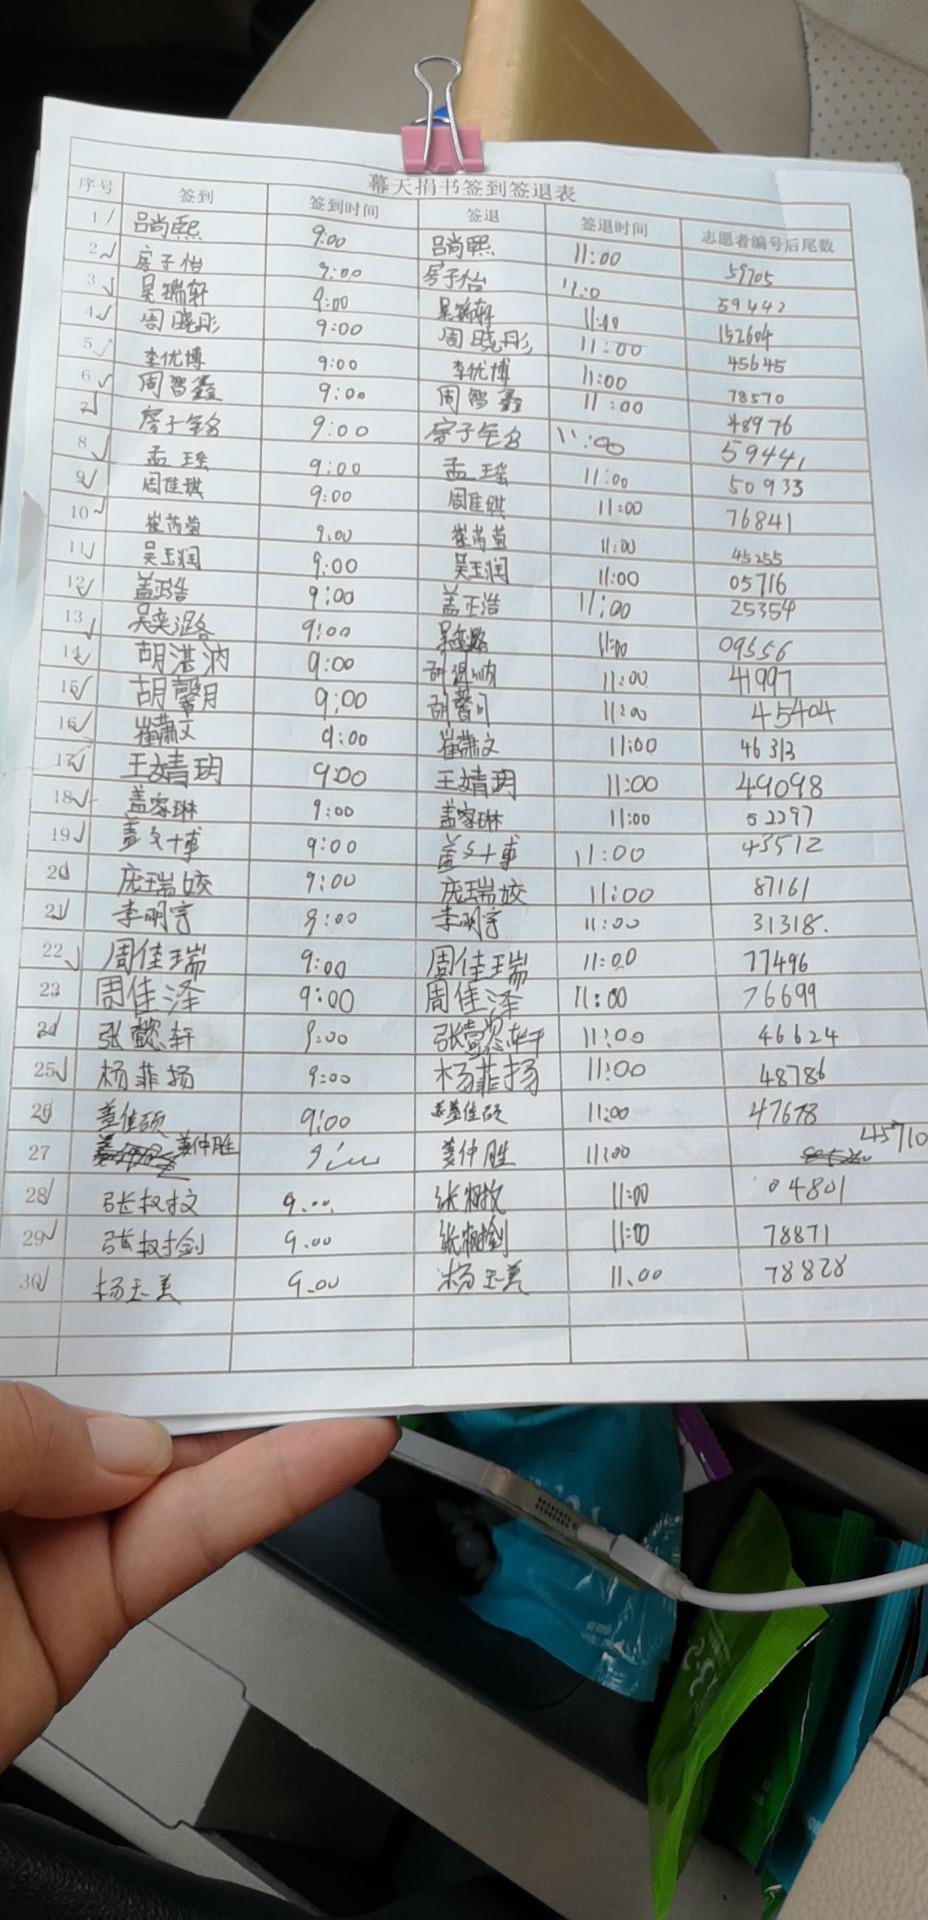 幕天捐书签到签退表
序号 签到 签到时间 签退 签退时间 志愿者编号后尾数
1 吕尚熙 9:00 吕尚熙 11:00 59705
2 房子怡 9:00 房子怡 11:0 59442
3 吴瑞轩 9:00 吴瑞轩 11:00 152604
4 周晓彤 9:00 周晓彤 11:00 45645
5 李优博 9:00 李优博 11:00 78570
6 周智鑫 9:00 周智鑫 11:00 48976
7 房子 9:00 房子 11:00 59441
8 孟瑶 9:00 孟瑶 11:00 50933
9 周佳琪 9:00 周佳琪 11:00 76841
10 崔芮萤 9:00 崔芮萤 11:00 45255
11 吴玉润 9:00 吴玉润 11:00 05716
12 盖正浩 9:00 盖正浩 11:00 25354
13 吴奕潞 9:00 吴奕潞 11:00 09556
14 胡湛汭 9:00 胡湛汭 11:00 41997
15 胡馨月 9:00 胡馨月 11:00 45404
16 崔萧文 9:00 崔萧文 11:00 46313
17 王婧玥 9:00 王婧玥 11:00 49098
18 盖家琳 9:00 盖家琳 11:00 52297
19 盖文博 9:00 盖文博 11:00 43512
20 庞瑞姣 9:00 庞瑞姣 11:00 87161
21 李明宇 9:00 李明宇 11:00 31318.
22 周佳瑞 9:00 周佳瑞 11:00 77496
23 周佳泽 9:00 周佳泽 11:00 76699
24 张懿轩 9:00 张懿轩 11:00 46624
25 杨菲扬 9:00 杨菲扬 11:00 48786
26 姜佳硕 9:00 姜佳硕 11:00 47678
27 姜仲胜 姜仲胜 11:00 45710
28 张权文 9.00 张权文 11:00 04801
29 张权剑 9.00 张权剑 11:00 78871
30 杨玉美 9.00 杨玉美 11.00 78828